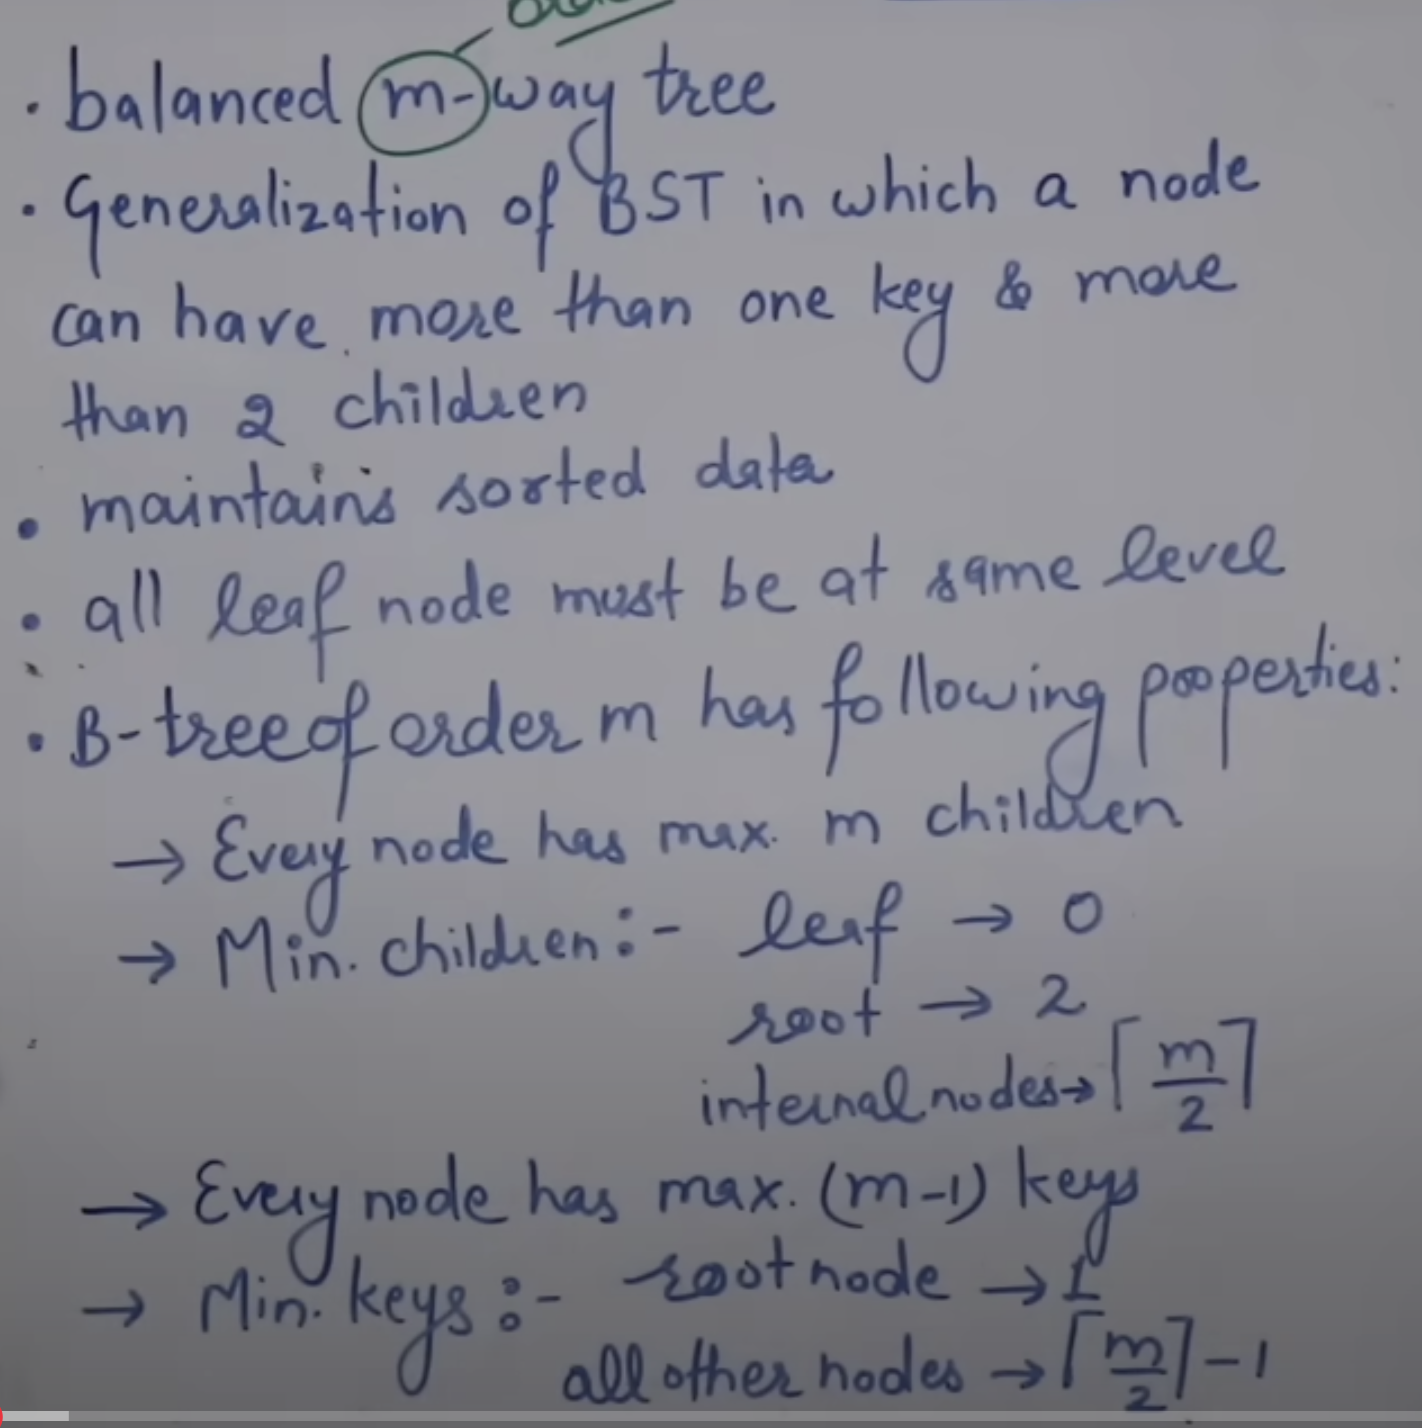 • balanced m-way tree
• Generalization of BST in which a node
can have more than one key & more
than 2 children
• maintains sorted data
• all leaf node must be at same level
• B-tree of order m has following properties:
→ Every node has max. m children
→ Min. children :- leaf → 0
root → 2
internal nodes → ⌈m/2⌉
→ Every node has max. (m-1) keys
→ Min. keys :- root node → 1
all other nodes → ⌈m/2⌉ - 1